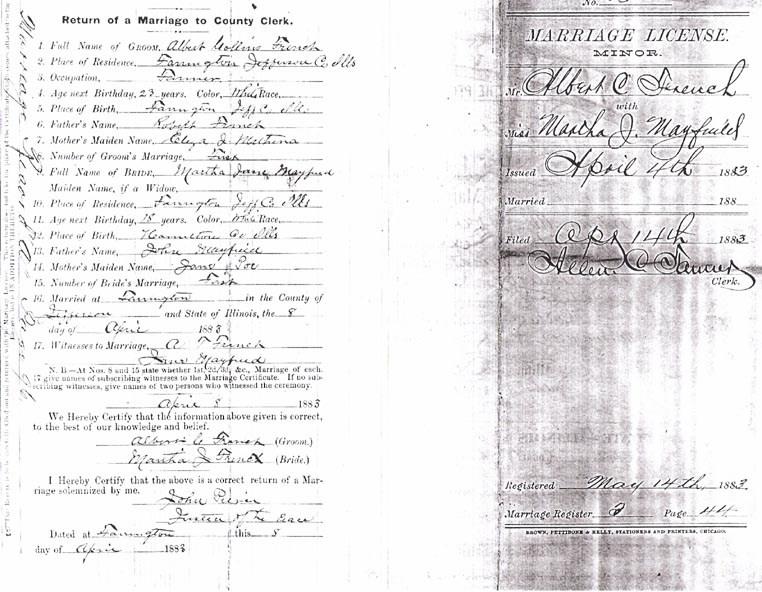 Return of a Marriage to County Clerk.
1. Full Name of GROOM, Albert Collins French
2. Place of Residence, Farrington Jefferson Co Ills
3. Occupation, Farmer
4. Age next Birthday, 23 years. Color, White Race,
5. Place of Birth, Farrington Jeff Co. Ills.
6. Father's Name, Robert French
7. Mother's Maiden Name, Eliza J.
8. Number of Groom's Marriage, First
9. Full Name of BRIDE, Martha Jane Mayfield
Maiden Name, if a Widow,
10. Place of Residence, Farrington Jeff Co Ills
11. Age next Birthday, 18 years. Color, White Race,
12. Place of Birth, Hamilton Co Ills
13. Father's Name, John Mayfield
14. Mother's Maiden Name, Jane Poe
15. Number of Bride's Marriage, First
16. Married at Farrington in the County of
Jefferson and State of Illinois, the 8
day of April 1883
17. Witnesses to Marriage, A T French
Jane Mayfield
N. B.—At Nos. 8 and 15 state whether 1st, 2d, 3d, &c., Marriage of each.
17 give names of subscribing witnesses to the Marriage Certificate. If no sub-
scribing witnesses, give names of two persons who witnessed the ceremony.
April 8 1883
We Hereby Certify that the information above given is correct,
to the best of our knowledge and belief.
Albert C French (Groom.)
Martha J French (Bride.)
I Hereby Certify that the above is a correct return of a Mar-
riage solemnized by me.
John
Justice of the Peace
Dated at Farrington this 8
day of April 1883
Marriage Record
No.
MARRIAGE LICENSE.
MINOR.
Mr. Albert C French
with
Miss Martha J. Mayfield
Issued April 4th 1883
Married 188
Filed Apr 14th 1883
Allen C Tanner
Clerk.
Registered May 14th, 1883.
Marriage Register 3 Page 44
BROWN, PETTIBONE & KELLY, STATIONERS AND PRINTERS, CHICAGO.